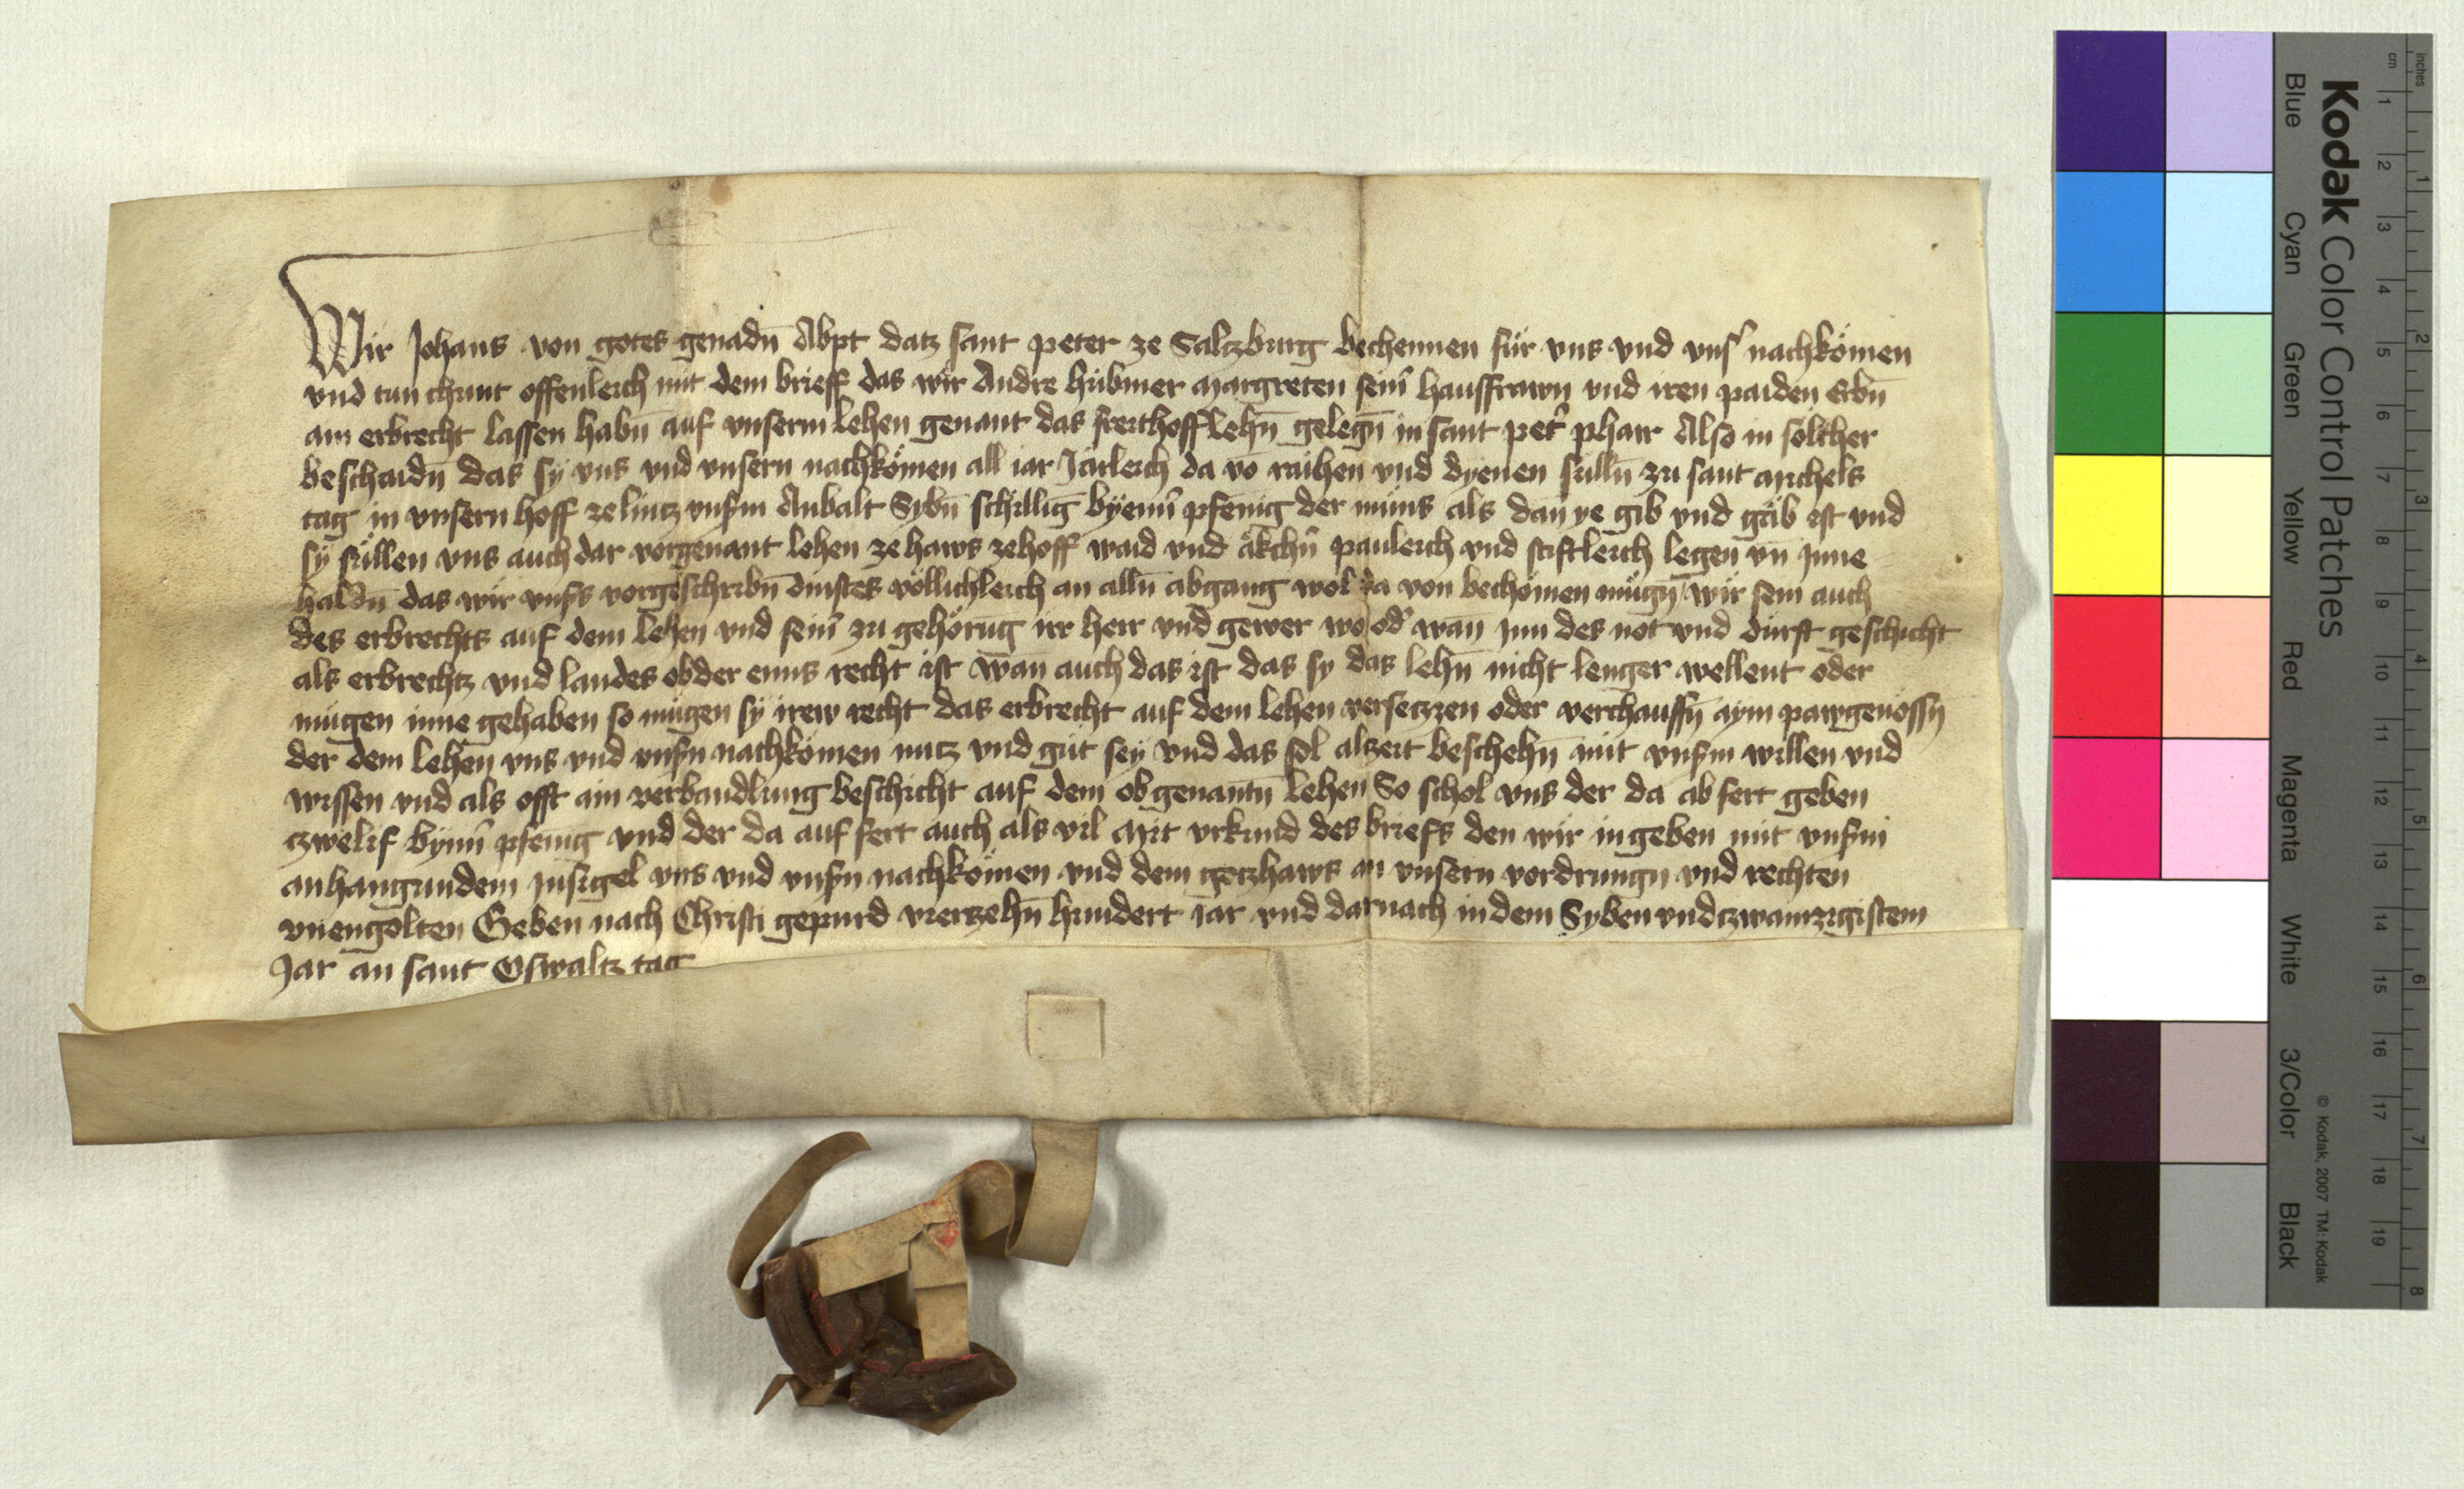 Wir Johans von gotes genadn̄ Abpt datz sant peter ze Saltzburg bechennen für vns vnd vnsʼ nachkömen
vnd tun chunt offenleich mit dem brieff das wir Andre hubmer Margreten seinʼ hausfrawn vnd iren paiden Erbn̄
ain erbrecht lassen habn̄ auf vnserm lehen genant das freithofflehn̄ gelegn̄ in sant petʼ pharr Also in sölicher
beschaidn̄ das sy vns vnd vnsern nachkömen all iar Järleich da vō raihen vnd dyenen sülln̄ zu sant Michels
tag in vnsern hoff ze lintz vnsm Anbalt Sybn̄ schilliḡ byenn̄ pfenig der müns als dan ye gib vnd gäb ist vnd
sy süllen vns auch dar vorgenant lehen ze haws ze hoff waid vnd äkchn̄ pauleich vnd stiftleich legen vn̄ Inne
haldn̄ das wir vnsʼs vorgeschribn̄ dinstes völlichleich an alln̄ abgang wol da von bechömen mügn̄ wir sein auch
des erbrechts auf dem lehen vnd seinʼ zu gehörug irr herr vnd gewer wo odʼ wan inn des not vnd durft geschicht
als erbrechtz vnd landes ob der enns recht ist wan auch das ist das sy das lehn̄ nicht lenger wellent oder
mügen inne gehaben so mügen sy irew recht das erbrecht auf dem lehen versetzzen oder verchauffn̄ aym pawgenossn̄
der dem lehen vns vnd vnsʼn nachkömen nutz vnd güt sey vnd das sol alzeit beschehn̄ mit vnsʼm willen vnd
wissen vnd als offt ain verbandlung beschicht auf dem obgenantn̄ lehen So schol vns der da ab fert geben
tzwelif bynn̄ pfenig vnd der da auf fert auch als vil Mit vrkund des briefs den wir in geben mit vnsʼm
anhangundem Insigel vns vnd vnsʼn nachkömen vnd dem gotzhaws an vnsern vordrungn̄ vnd rechten
vnengolten Geben nach Christi gepurd vierzehn̄ hundert iar vnd darnach in dem Syben vnd tzwaintzigistem
Jar an sant Oswaltz tag
Kodak Color Control Patches
Blue Cyan Green Yellow Red Magenta White 3/Color Black
© Kodak, 2007 TM: Kodak
inches 1 2 3 4 5 6 7 8
cm 1 2 3 4 5 6 7 8 9 10 11 12 13 14 15 16 17 18 19